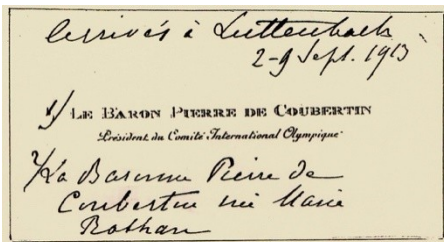 Arrivés à Luttenbach
2-9 Sept. 1913
1/ LE BARON PIERRE DE COUBERTIN
Président du Comité International Olympique
2/ La Baronne Pierre de
Coubertin née Marie
Rothan